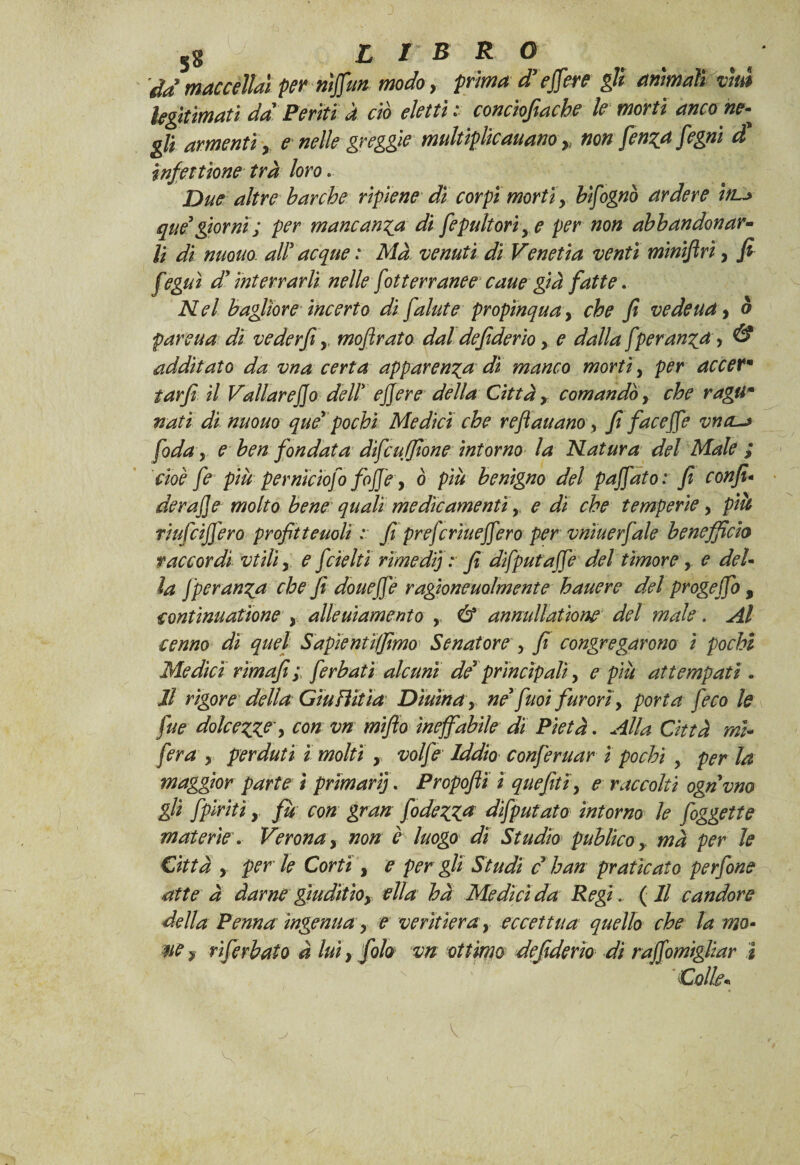 58 LIBRO
da' maccellai per niſſun modo, prima d'eſſere gli animali viui
legitimati da' Periti à ciò eletti: concioſiache le morti anco ne-
gli armenti, e nelle greggie multiplicauano, non ſenza ſegni d'
infettione trà loro.
Due altre barche ripiene di corpi morti, biſognò ardere in
que' giorni; per mancanza di ſepultori, e per non abbandonar-
li di nuouo all' acque: Mà venuti di Venetia venti miniſtri, ſi
ſeguì d' interrarli nelle ſotterranee caue già fatte.
Nel bagliore incerto di ſalute propinqua, che ſi vedeua, ò
pareua di vederſi, moſtrato dal deſiderio, e dalla ſperanza, &
additato da vna certa apparenza di manco morti, per accer-
tarſi il Vallareſſo dell' eſſere della Città, comandò, che ragu-
nati di nuouo que' pochi Medici che reſtauano, ſi faceſſe vna
ſoda, e ben fondata diſcuſſione intorno la Natura del Male;
cioè ſe più pernicioſo foſſe, ò più benigno del paſſato: ſi conſi-
deraſſe molto bene quali medicamenti, e di che temperie, più
riuſciſſero profitteuoli: ſi preſcriueſſero per vniuerſale benefficio
raccordi vtili, e ſcielti rimedij: ſi diſputaſſe del timore, e del-
la ſperanza che ſi doueſſe ragioneuolmente hauere del progeſſo,
continuatione, alleuiamento, & annullatione del male. Al
cenno di quel Sapientiſſimo Senatore, ſi congregarono i pochi
Medici rimaſi; ſerbati alcuni de' principali, e più attempati.
Il rigore della Giuſtitia Diuina, ne' ſuoi furori, porta ſeco le
ſue dolcezze, con vn miſto ineffabile di Pietà. Alla Città mi-
ſera, perduti i molti, volſe Iddio conſeruar i pochi, per la
maggior parte i primarij. Propoſti i queſiti, e raccolti ogn'vno
gli ſpiriti, fù con gran ſodezza diſputato intorno le ſoggette
materie. Verona, non è luogo di Studio publico, mà per le
Città, per le Corti, e per gli Studi c' han praticato perſone
atte à darne giuditio, ella hà Medici da Regi. (Il candore
della Penna ingenua, e veritiera, eccettua quello che la mo-
ue, riſerbato à lui, ſolo vn ottimo deſiderio di raſſomigliar i
Colle-